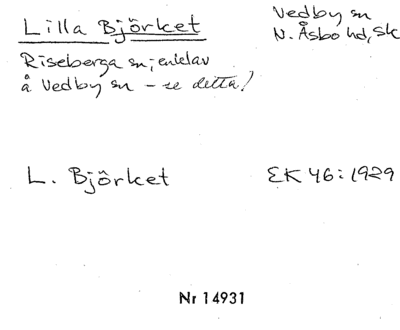 Lilla Björket
Vedby sn
N. Åsbo hd, Sk
Riseberga sn; enclav
å Vedby sn – se detta!
L. Björket
EK 46:1929
Nr 14931